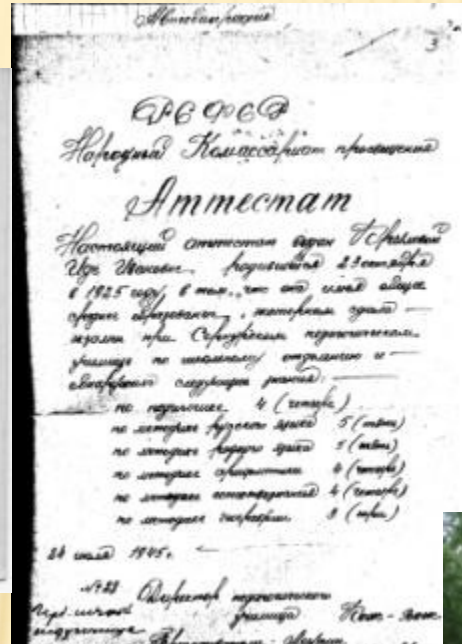 Автобиография
3
РСФСР
Народный Комиссариат просвещения
Аттестат
Настоящий аттестат выдан
Иде родившейся 23 октября
в 1925 году, в том, что она имея общее
среднее образование, экстерном сдала
экзамен при Сернурском педагогическом
училище по школьному отделению и
следующие
по педагогике 4 (четыре)
по методике русского языка 5 (пять)
по методике родного языка 5 (пять)
по методике арифметики 4 (четыре)
по методике естествознания 4 (четыре)
по методике географии 3 (три)
24 июля 1945г.
Директор педагогического
училища